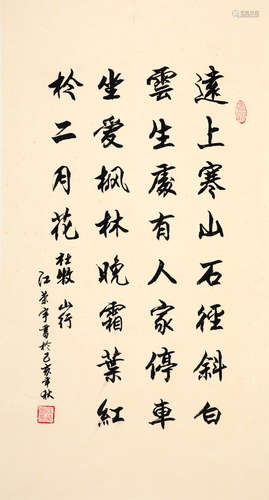 遠上寒山石徑斜白
雲生處有人家停車
坐愛楓林晚霜葉紅
於二月花
杜牧 山行
江 宇書於己亥年秋